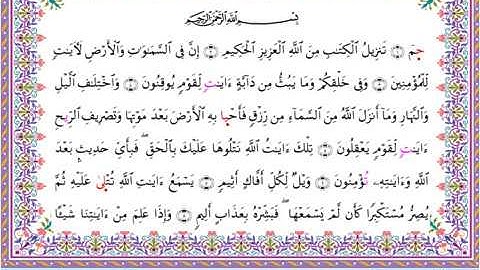 بِسْمِ اللَّهِ الرَّحْمَٰنِ الرَّحِيمِ
حمٓ ۝ تَنزِيلُ ٱلْكِتَٰبِ مِنَ ٱللَّهِ ٱلْعَزِيزِ ٱلْحَكِيمِ ۝ إِنَّ فِى ٱلسَّمَٰوَٰتِ وَٱلْأَرْضِ لَءَايَٰتٍ
لِّلْمُؤْمِنِينَ ۝ وَفِى خَلْقِكُمْ وَمَا يَبُثُّ مِن دَآبَّةٍ ءَايَٰتٍ لِّقَوْمٍ يُوقِنُونَ ۝ وَٱخْتِلَٰفِ ٱلَّيْلِ
وَٱلنَّهَارِ وَمَآ أَنزَلَ ٱللَّهُ مِنَ ٱلسَّمَآءِ مِن رِّزْقٍ فَأَحْيَا بِهِ ٱلْأَرْضَ بَعْدَ مَوْتِهَا وَتَصْرِيفِ ٱلرِّيحِ
ءَايَٰتٍ لِّقَوْمٍ يَعْقِلُونَ ۝ تِلْكَ ءَايَٰتُ ٱللَّهِ نَتْلُوهَا عَلَيْكَ بِٱلْحَقِّ ۖ فَبِأَىِّ حَدِيثٍۭ بَعْدَ
ٱللَّهِ وَءَايَٰتِهِۦ تُؤْمِنُونَ ۝ وَيْلٌ لِّكُلِّ أَفَّاكٍ أَثِيمٍ ۝ يَسْمَعُ ءَايَٰتِ ٱللَّهِ تُتْلَىٰ عَلَيْهِ ثُمَّ
يُصِرُّ مُسْتَكْبِرًا كَأَن لَّمْ يَسْمَعْهَا ۖ فَبَشِّرْهُ بِعَذَابٍ أَلِيمٍ ۝ وَإِذَا عَلِمَ مِنْ ءَايَٰتِنَا شَيْـًٔا